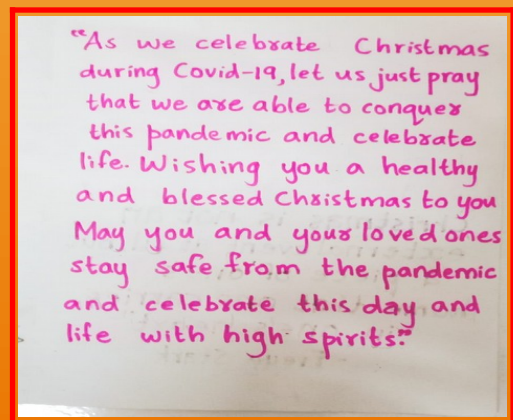 "As we celebrate Christmas
during Covid-19, let us just pray
that we are able to conquer
this pandemic and celebrate
life. Wishing you a healthy
and blessed Christmas to you
May you and your loved ones
stay safe from the pandemic
and celebrate this day and
life with high spirits."